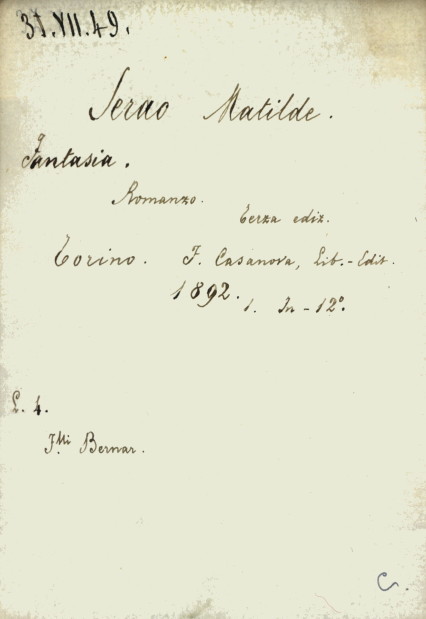 31.VII.49.
Serao Matilde.
Fantasia.
Romanzo.
Terza ediz.
Torino. F. Casanova, Lib.-Edit.
1892. 1. In-12°.
L. 4.
F.lli Bernar.
C.